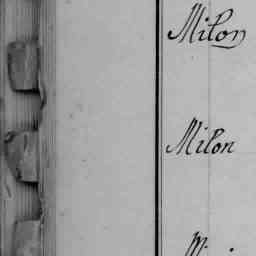 Milon
Milon